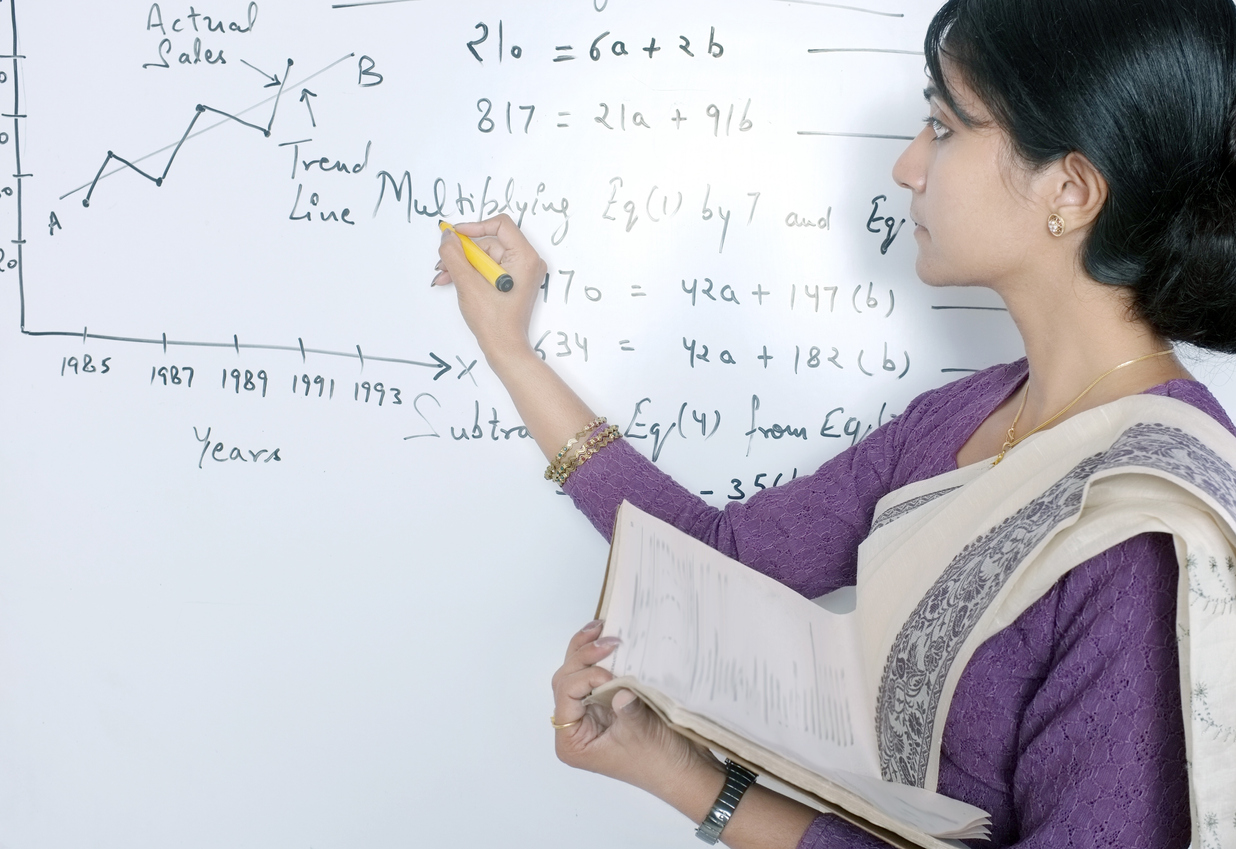 Actual
Sales
B
Trend
Line
A
20
1985 1987 1989 1991 1993
X
Years
210 = 6a + 2b
817 = 21a + 91b
Multiplying Eq(1) by 7 and Eq
470 = 42a + 147(b)
634 = 42a + 182(b)
Subtra Eq(4) from Eq(
- 35(